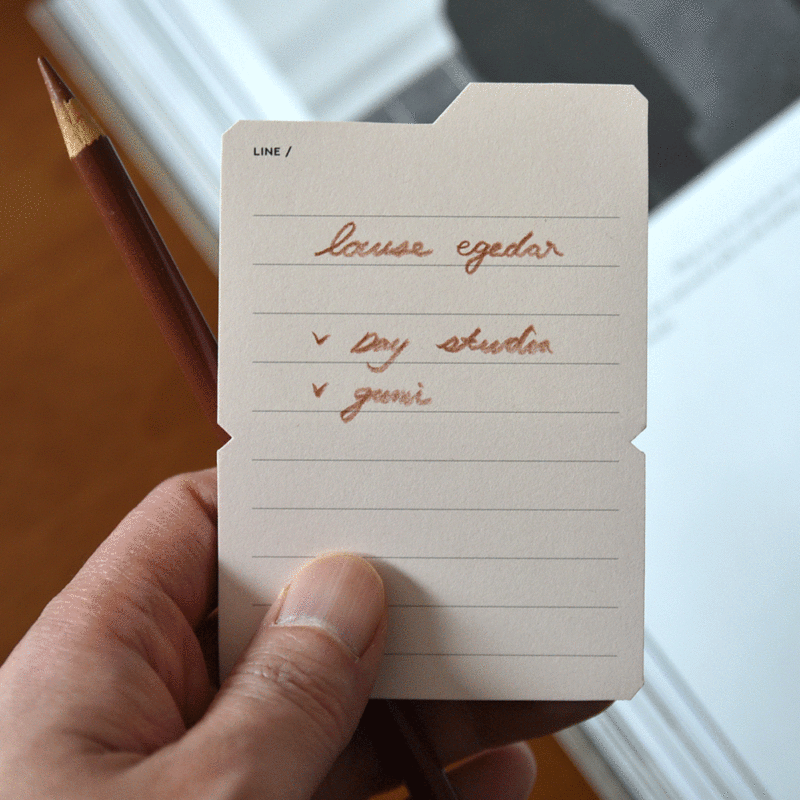 LINE /
louise egedar
✓ Day studia
✓ gumi